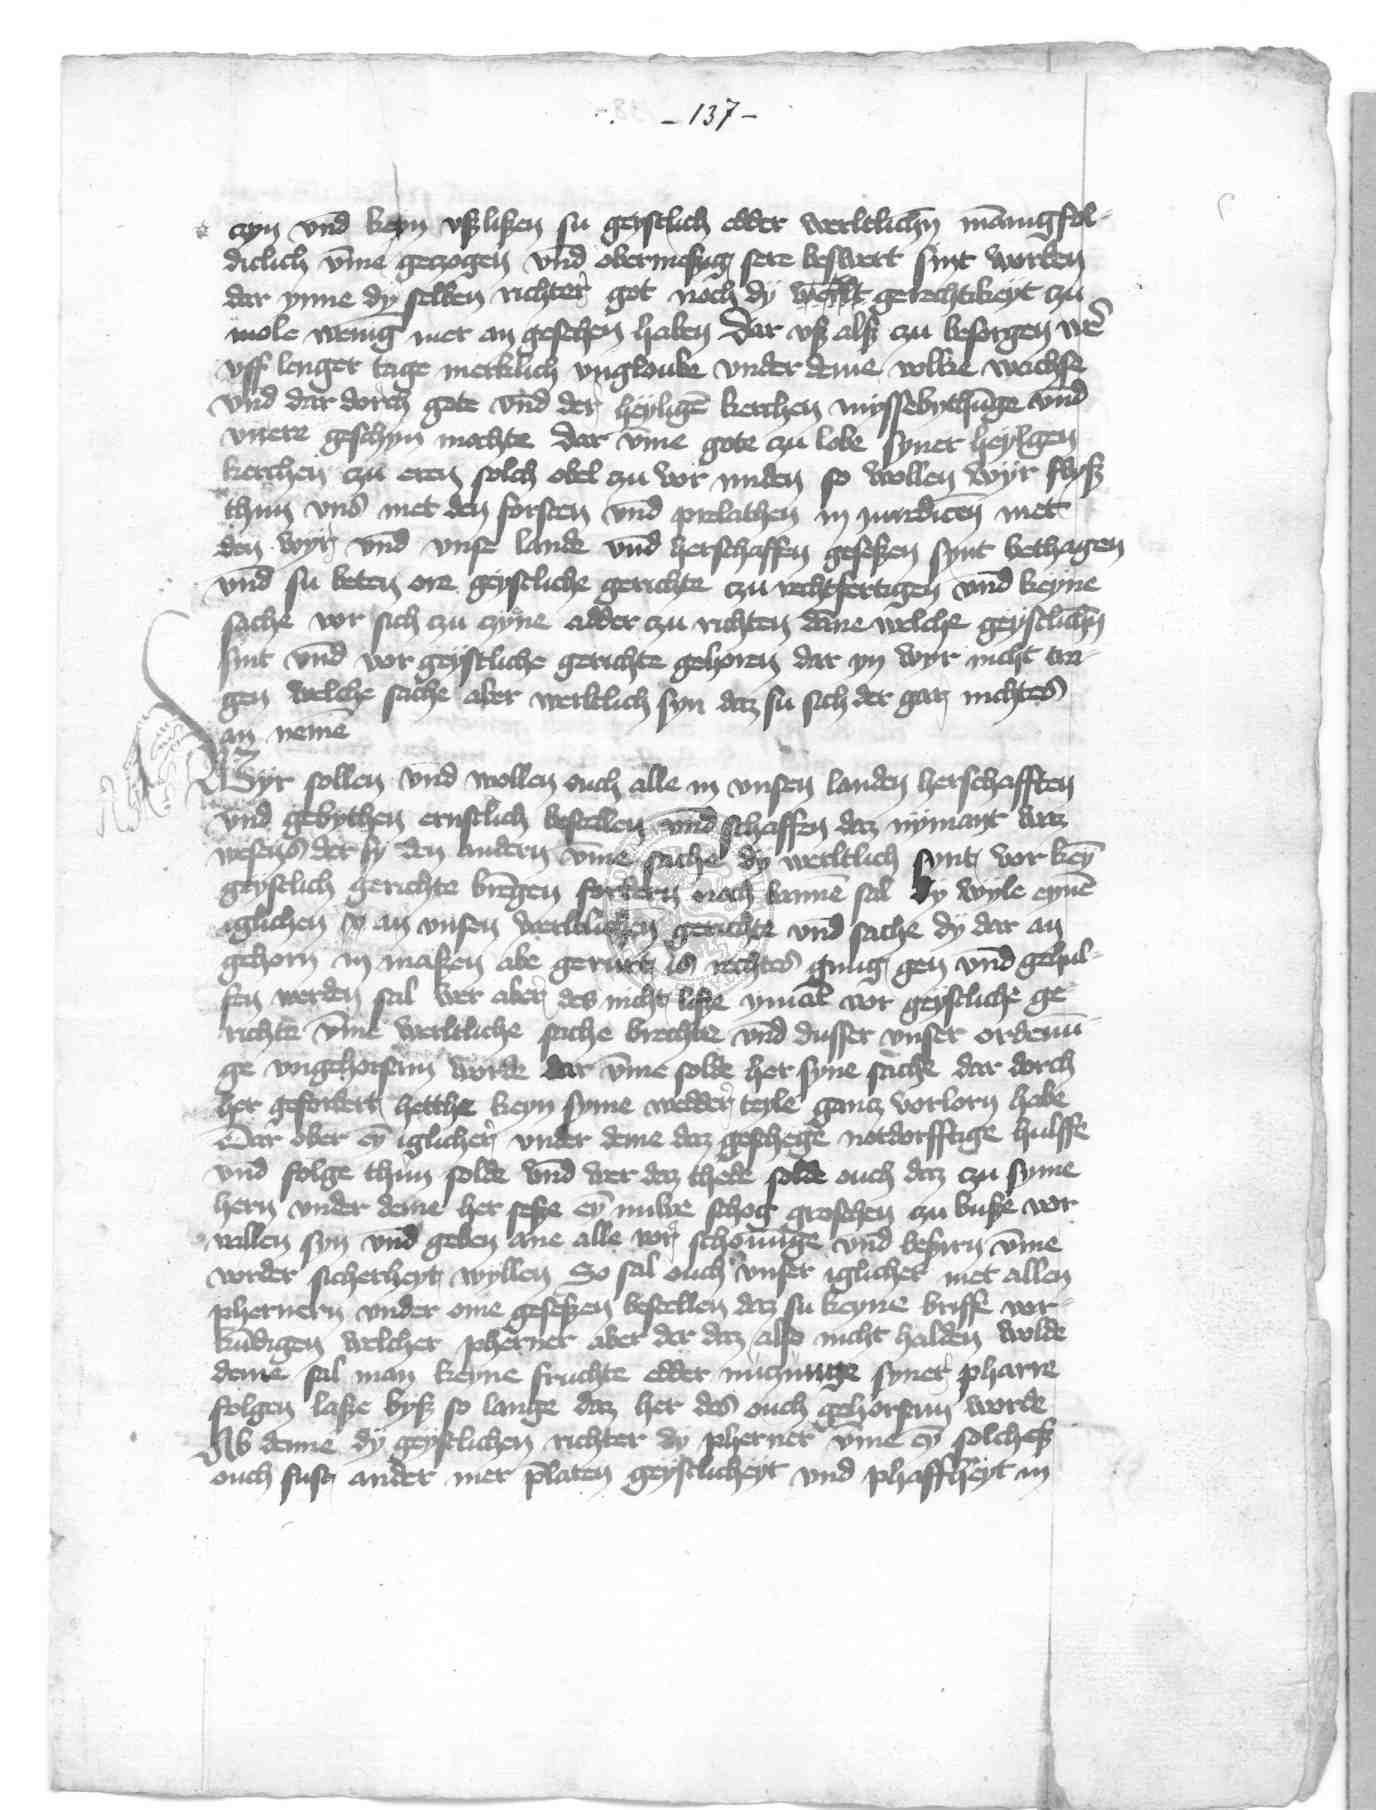 - 137 -
czyn vnd keyn vßlißen su geistlich edder werltlichn mānigfol-
diclich vm̄e geczogen vnd obermeßig sere beswert sint worden
dar ynne dy selben richter got noch dy gerechtikeyt czu
mole wenig mer an gesehen haben Dar vß alß zu besorgen wer
vff lenger tage merklich vngloube vnder deme volke wechse
vnd dar dorch gote vnd der heyligē kerchen myssebythūge vnd
vnere geschyn mochte dar vm̄e gote zu lobe syner heylgen
kerchen zu eren solch obel zu vor miden so wollen wyr flyß
thun vns met den forsten vnd prelathen in met
den wyr vnd vnse lande vnd herschaffen geseßen synt bethagen
vnd su beten ore geystliche gerichte czu rechtfertigen vnd keyne
sache vor sich zu czyne adder zu richten dāne welche geystlichn
sint vnd vor geystliche gerichte gehoren dar yn wyr nicht tra-
gen welche sache aber werltlich syn daz su sich der gar nichtes
an nemē
Wyr sollen vnd wollen ouch alle in vnsen landen herschafften
vnd gebythen ernstlich bestellen vnd schaffen daz nymant waz
wesens der sy den andern vm̄e sache dy werltlich synt vor keȳ
geystlich gerichte brēgen fordern noch bannē sal dy wyle eynē
iglichen v an vnsen werltlichen gerichte vnd sache dy dar an
gehorn in maßen abe gerurt is rechtes gnug gen vnd gehul-
fen werden sal wer aber des nicht liße ymāt vor geystliche ge-
richte vm̄e werltliche sache brechte vnd dusser vnser ordenū-
ge vngehorsam worde dar vm̄e solde her syne sache dar dorch
her gefordert hetthe keyn syme wedder teyle gancz vorlorn habe
Dar ober eȳ iglicher vnder deme daz geschege notdorfftige hulffe
vnd folge thun solde vnd wer daz thede solde ouch daz zu syme
hern vnder deme her seße eȳ nuwe schog groschen zu buße vor
vallen syn vnd geben ane alle vor schonūge vnd besurn vm̄e
vorder sicherheyt wyllen So sal ouch vnser iglicher met allen
phernern vnder ome geseßen bestellen daz su keyne briffe vor-
kūdigen welcher pherner aber der daz also nicht halden wolde
deme sal man keyne fruchte edder nuczunge syner pharre
folgen laße byß so lange daz her des ouch gehorsam worde
Ab denne dy geystlichen richter dy pherner vm̄e eȳ solcheß
ouch sust ander mer p̄laten geystlicheyt vnd phaffheyt in